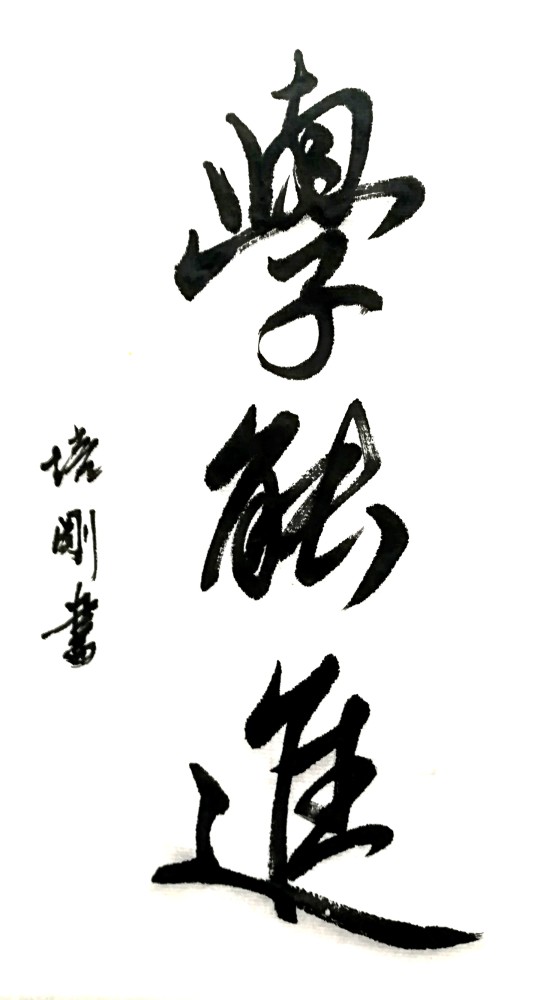 學能進
培剛書